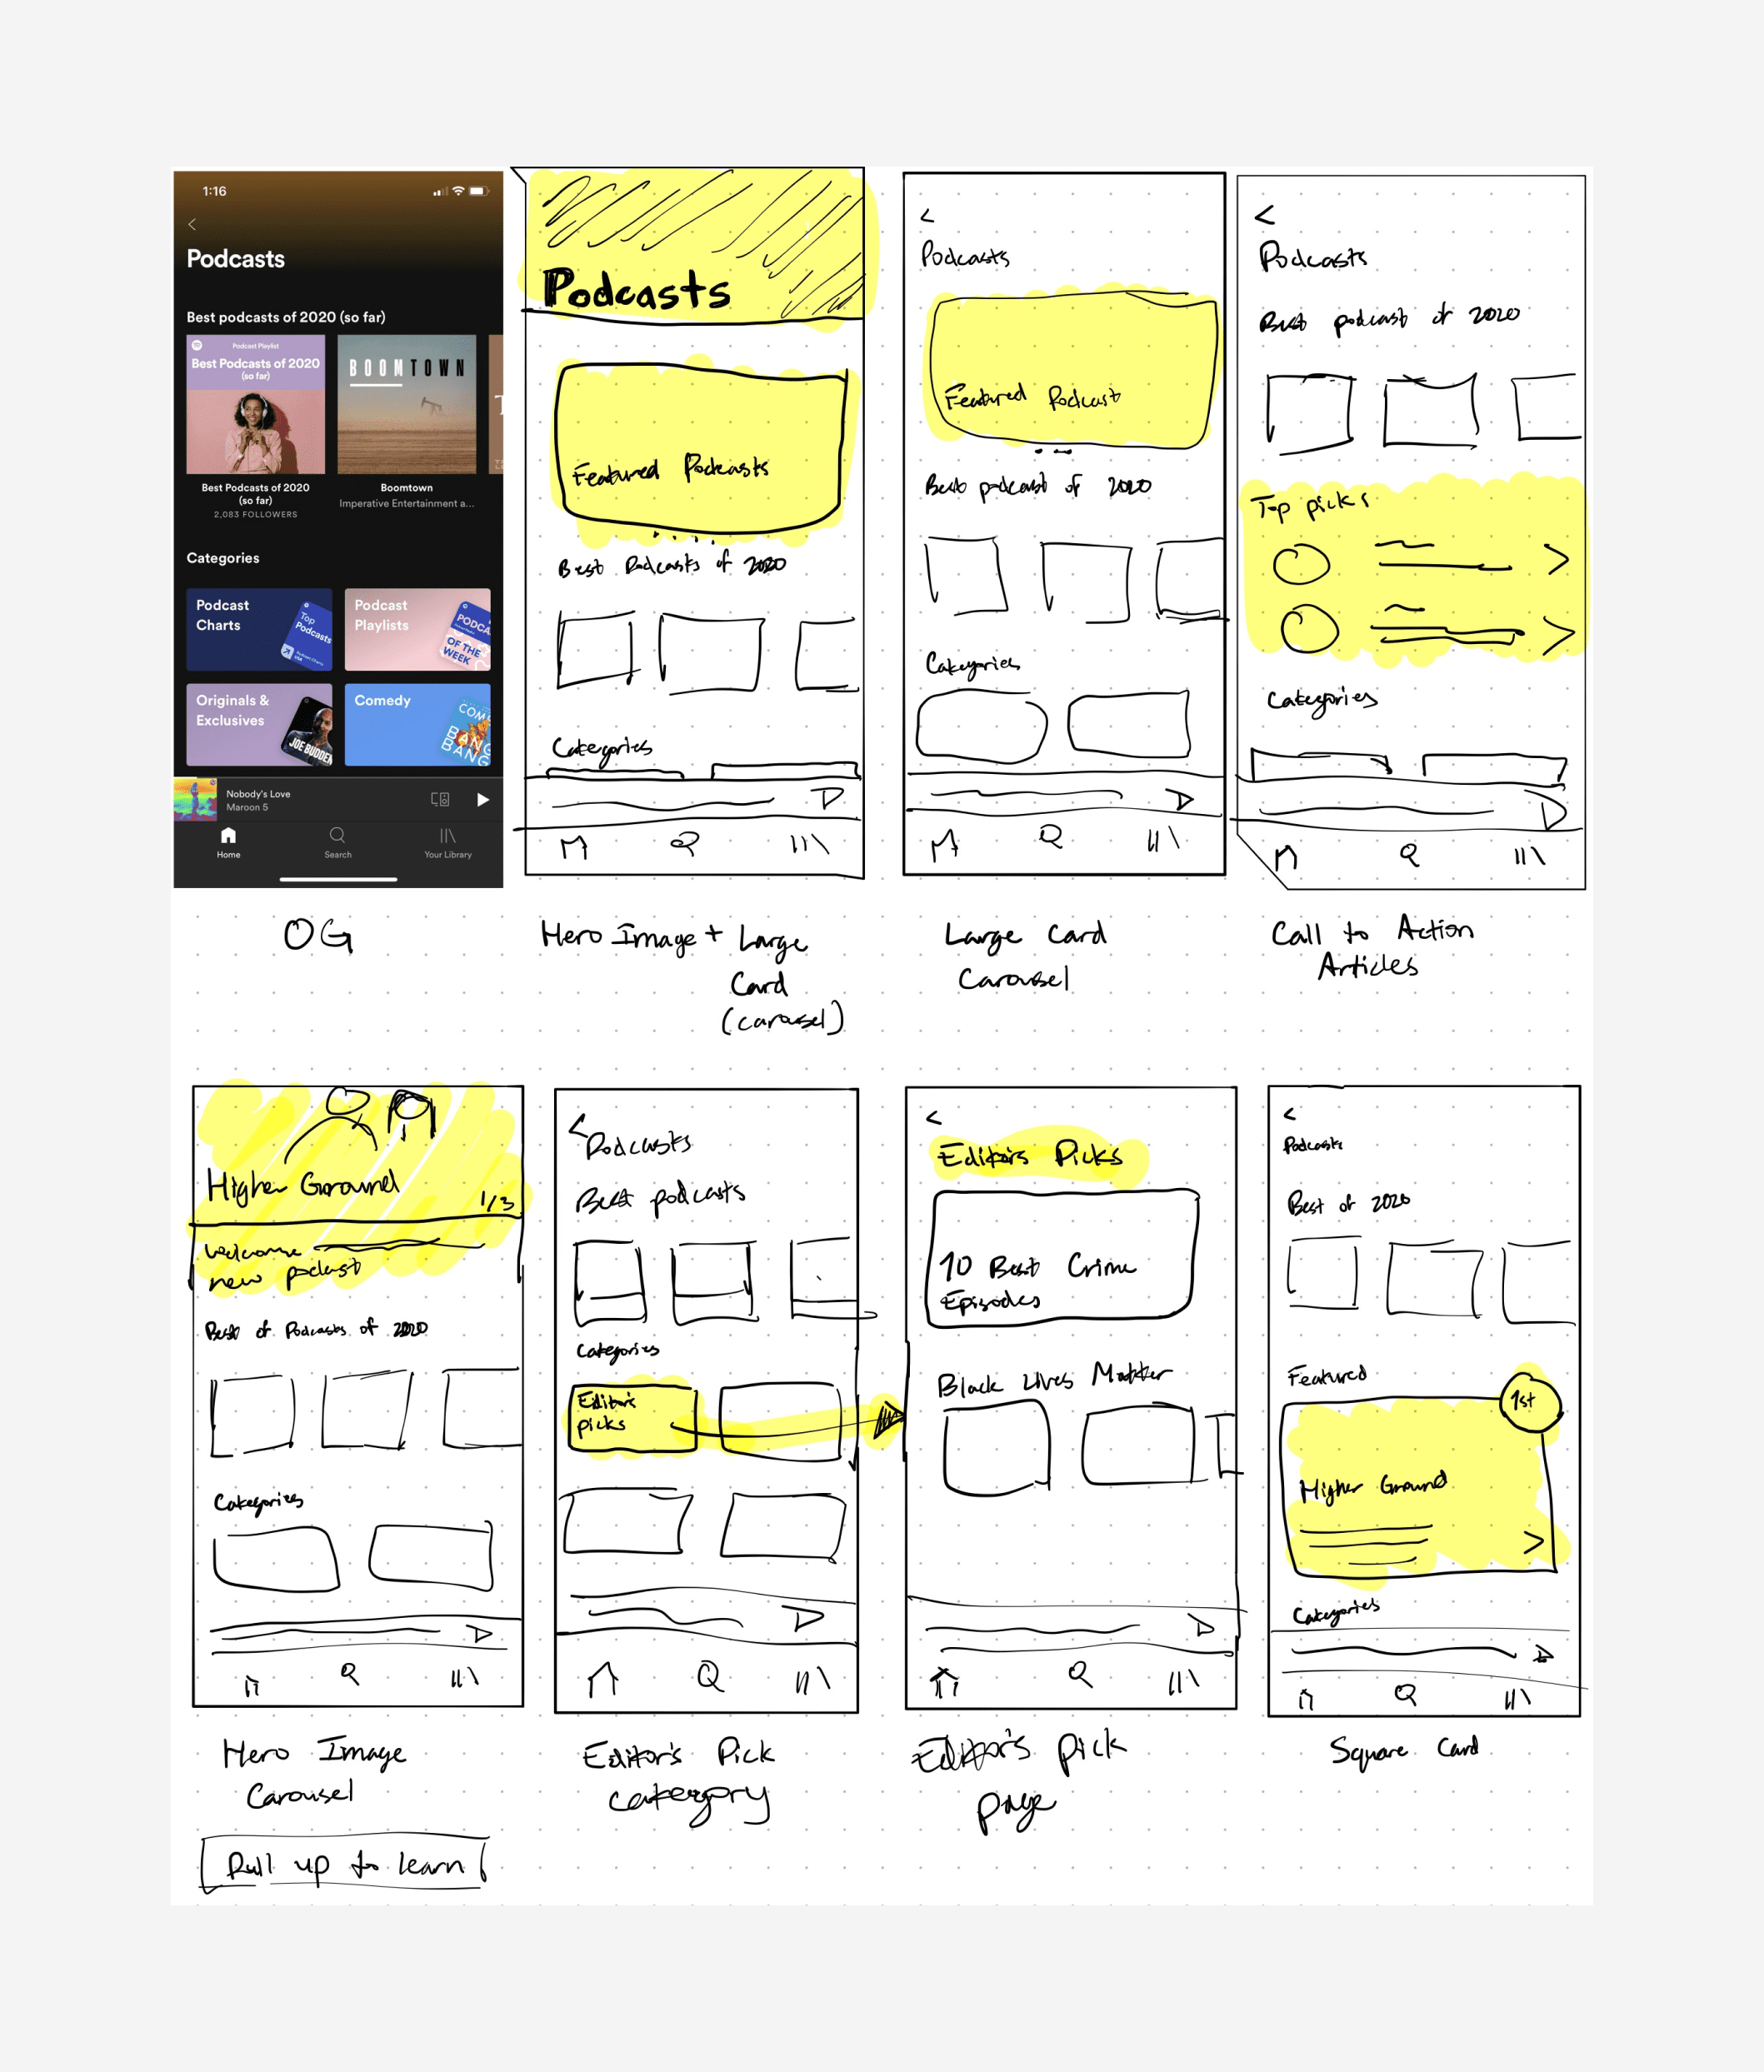 1:16
Podcasts
Best podcasts of 2020 (so far)
Podcast Playlist
Best Podcasts of 2020
(so far)
BOOMTOWN
Best Podcasts of 2020
(so far)
2,083 FOLLOWERS
Boomtown
Imperative Entertainment a...
Categories
Podcast
Charts
Top
Podcasts
Podcast
Playlists
PODCA
OF THE
WEEK
Originals &
Exclusives
JOE BUDDEN
Comedy
COM
BANG
BANG
Nobody's Love
Maroon 5
Home
Search
Your Library
OG
Podcasts
Featured Podcasts
Best Podcasts of 2020
Categories
Hero Image + Large
Card
(carousel)
Podcasts
Featured Podcast
Best podcast of 2020
Categories
Large Card
Carousel
Podcasts
Best podcast of 2020
Top picks
Categories
Call to Action
Articles
Higher Ground
1/3
welcome
new podcast
Best of Podcasts of 2020
Categories
Hero Image
Carousel
Pull up to learn
Podcasts
Best podcasts
Categories
Editor's
picks
Editor's Pick
catergory
Editor's Picks
10 Best Crime
Episodes
Black Lives Matter
Editor's pick
page
Podcasts
Best of 2020
Featured
1st
Higher Ground
Categories
Square Card